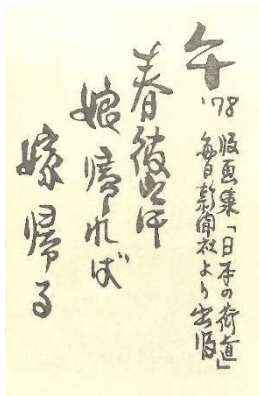 午
'78
版画集「日本の街道」
毎日新聞社より出版
春彼岸
娘帰れば
嫁帰る